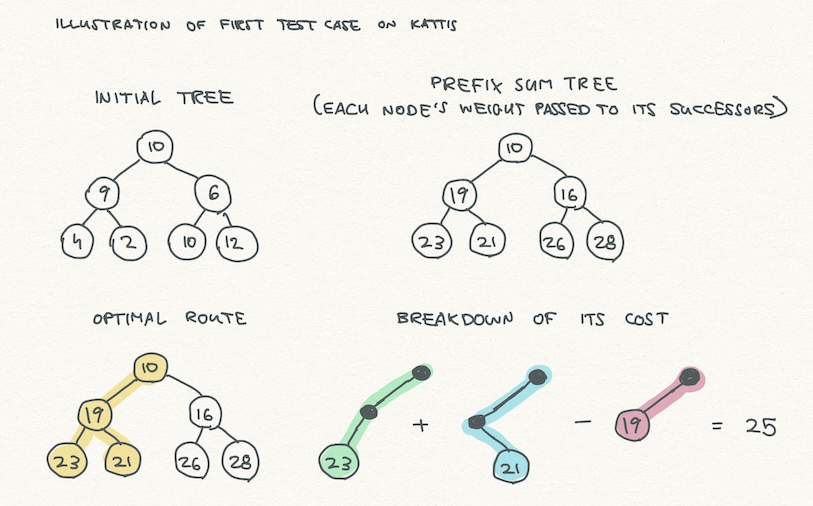 ILLUSTRATION OF FIRST TEST CASE ON KATTIS
INITIAL TREE
10
9 6
4 2 10 12
PREFIX SUM TREE
(EACH NODE'S WEIGHT PASSED TO ITS SUCCESSORS)
10
19 16
23 21 26 28
OPTIMAL ROUTE
10
19 16
23 21 26 28
BREAKDOWN OF ITS COST
23 + 21 - 19 = 25